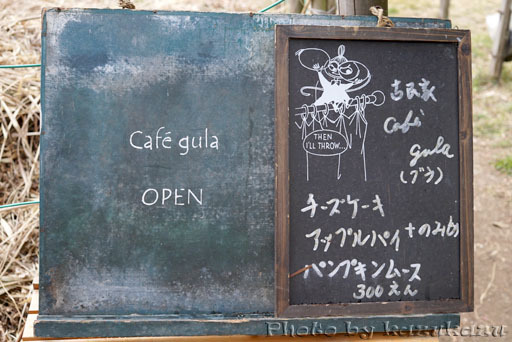 Café gula
OPEN
THEN
I'LL THROW...
古民家
Café
gula
(グラ)
チーズケーキ
アップルパイ +のみもの
パンプキンムース
300えん
Photo by kazukazu